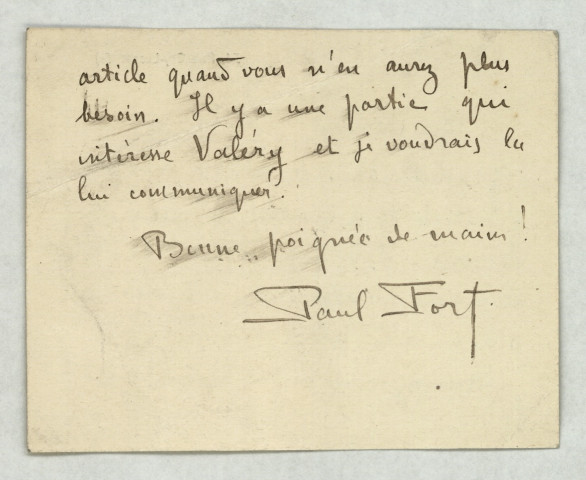 article quand vous n'en aurez plus
besoin. Il y a une partie qui
intéresse Valéry et je voudrais la
lui communiquer.
Bonne poignée de mains !
Paul Fort.